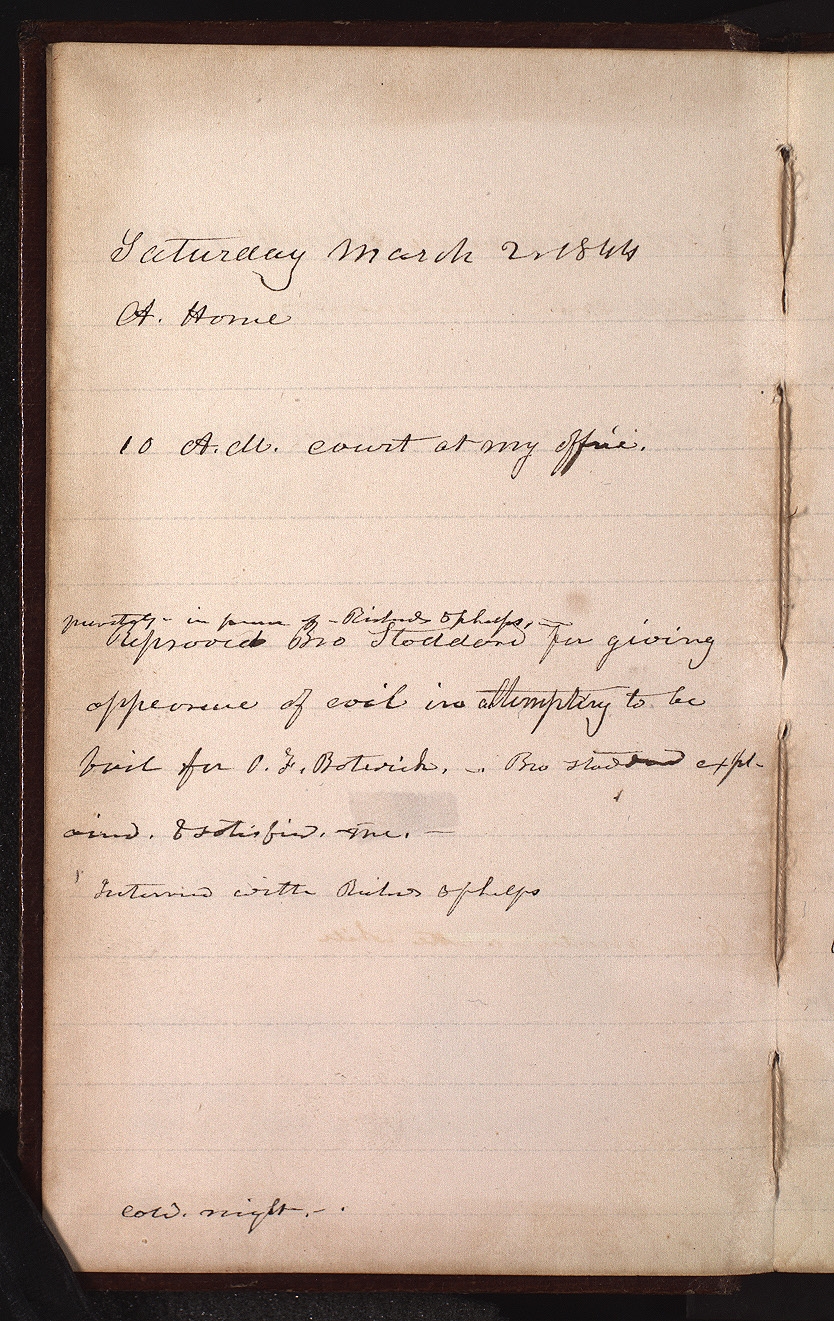 Saturday March 2 1844
At. Home
10 A.M. court at my office.
privately - in presence of - Richards & phelps, -
Reproved Bro Stoddard for giving
appearance of evil in attempting to be
bail for O. F. Botswick. - Bro stoddard expl-
aind. & satisfied. me. -
Interview with Richards & phelps
cold. night. - .